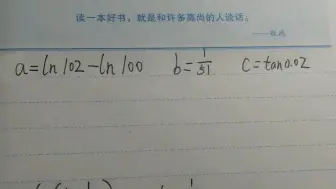 读一本好书，就是和许多高尚的人谈话。
——歌德
a=ln102-ln100 b=1/51 c=tan0.02